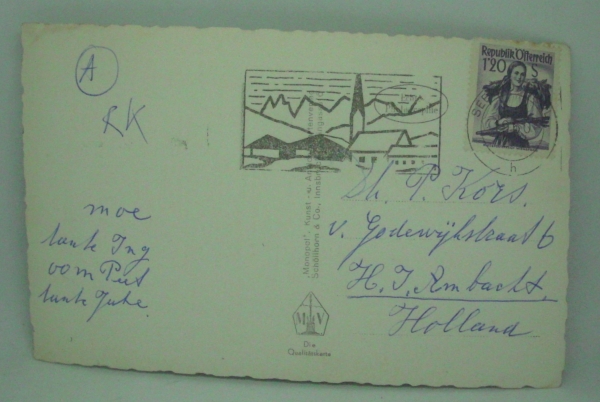 A
RK
Republik Österreich
1'20 S
moe
tante Ing
oom Piet
tante Juhe.
"Monopol", Kunst- u.
Schöllhorn & Co., Innsbruck
Dh. P. Kors.
v. Godewijkstraat 6
H. I. Ambacht.
Holland
M V
Die
Qualitätskarte
h